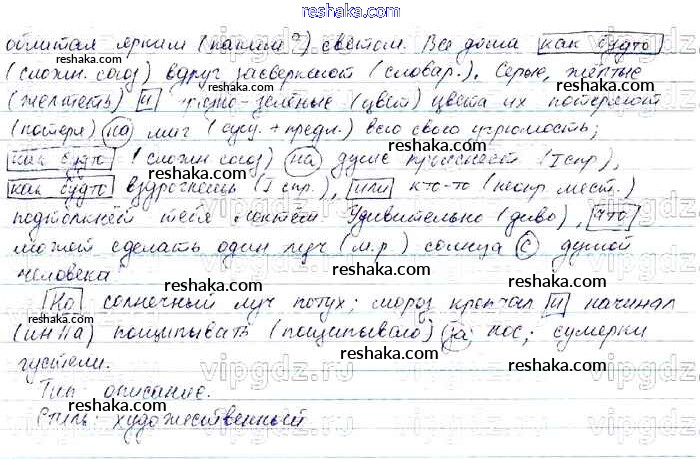 reshaka.com
облитая ярким (каким?) светом. Все дома как будто
(сложн. союз) вдруг засверкают (словар.). Серые, жёлтые
(желтеть) и грязно-зелёные (цвет) цвета их потеряют
(потеря) на миг (сущ. + предл.) всю свою угрюмость;
как будто (сложн союз) на душе прояснеет (I спр),
как будто вздрогнешь (I спр.), или кто-то (неопр мест.)
подтолкнёт тебя локтем. Удивительно (диво), что
может сделать один луч (м.р) солнца с душой
человека
Но солнечный луч потух; мороз крепчал и начинал
(инна) пощипывать (пощипывало) за нос; сумерки
густели.
Тип: описание.
Стиль: художественный